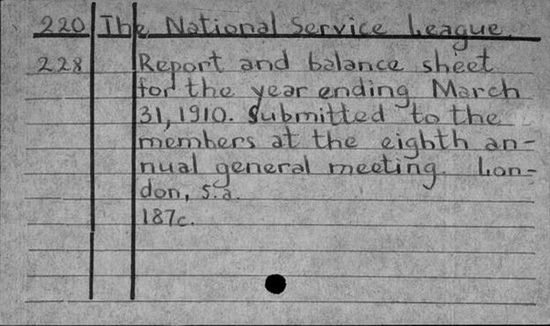 220 The National Service League.
228 Report and balance sheet
for the year ending March
31, 1910. Submitted to the
members at the eighth an-
nual general meeting. Lon-
don, s.a.
187c.